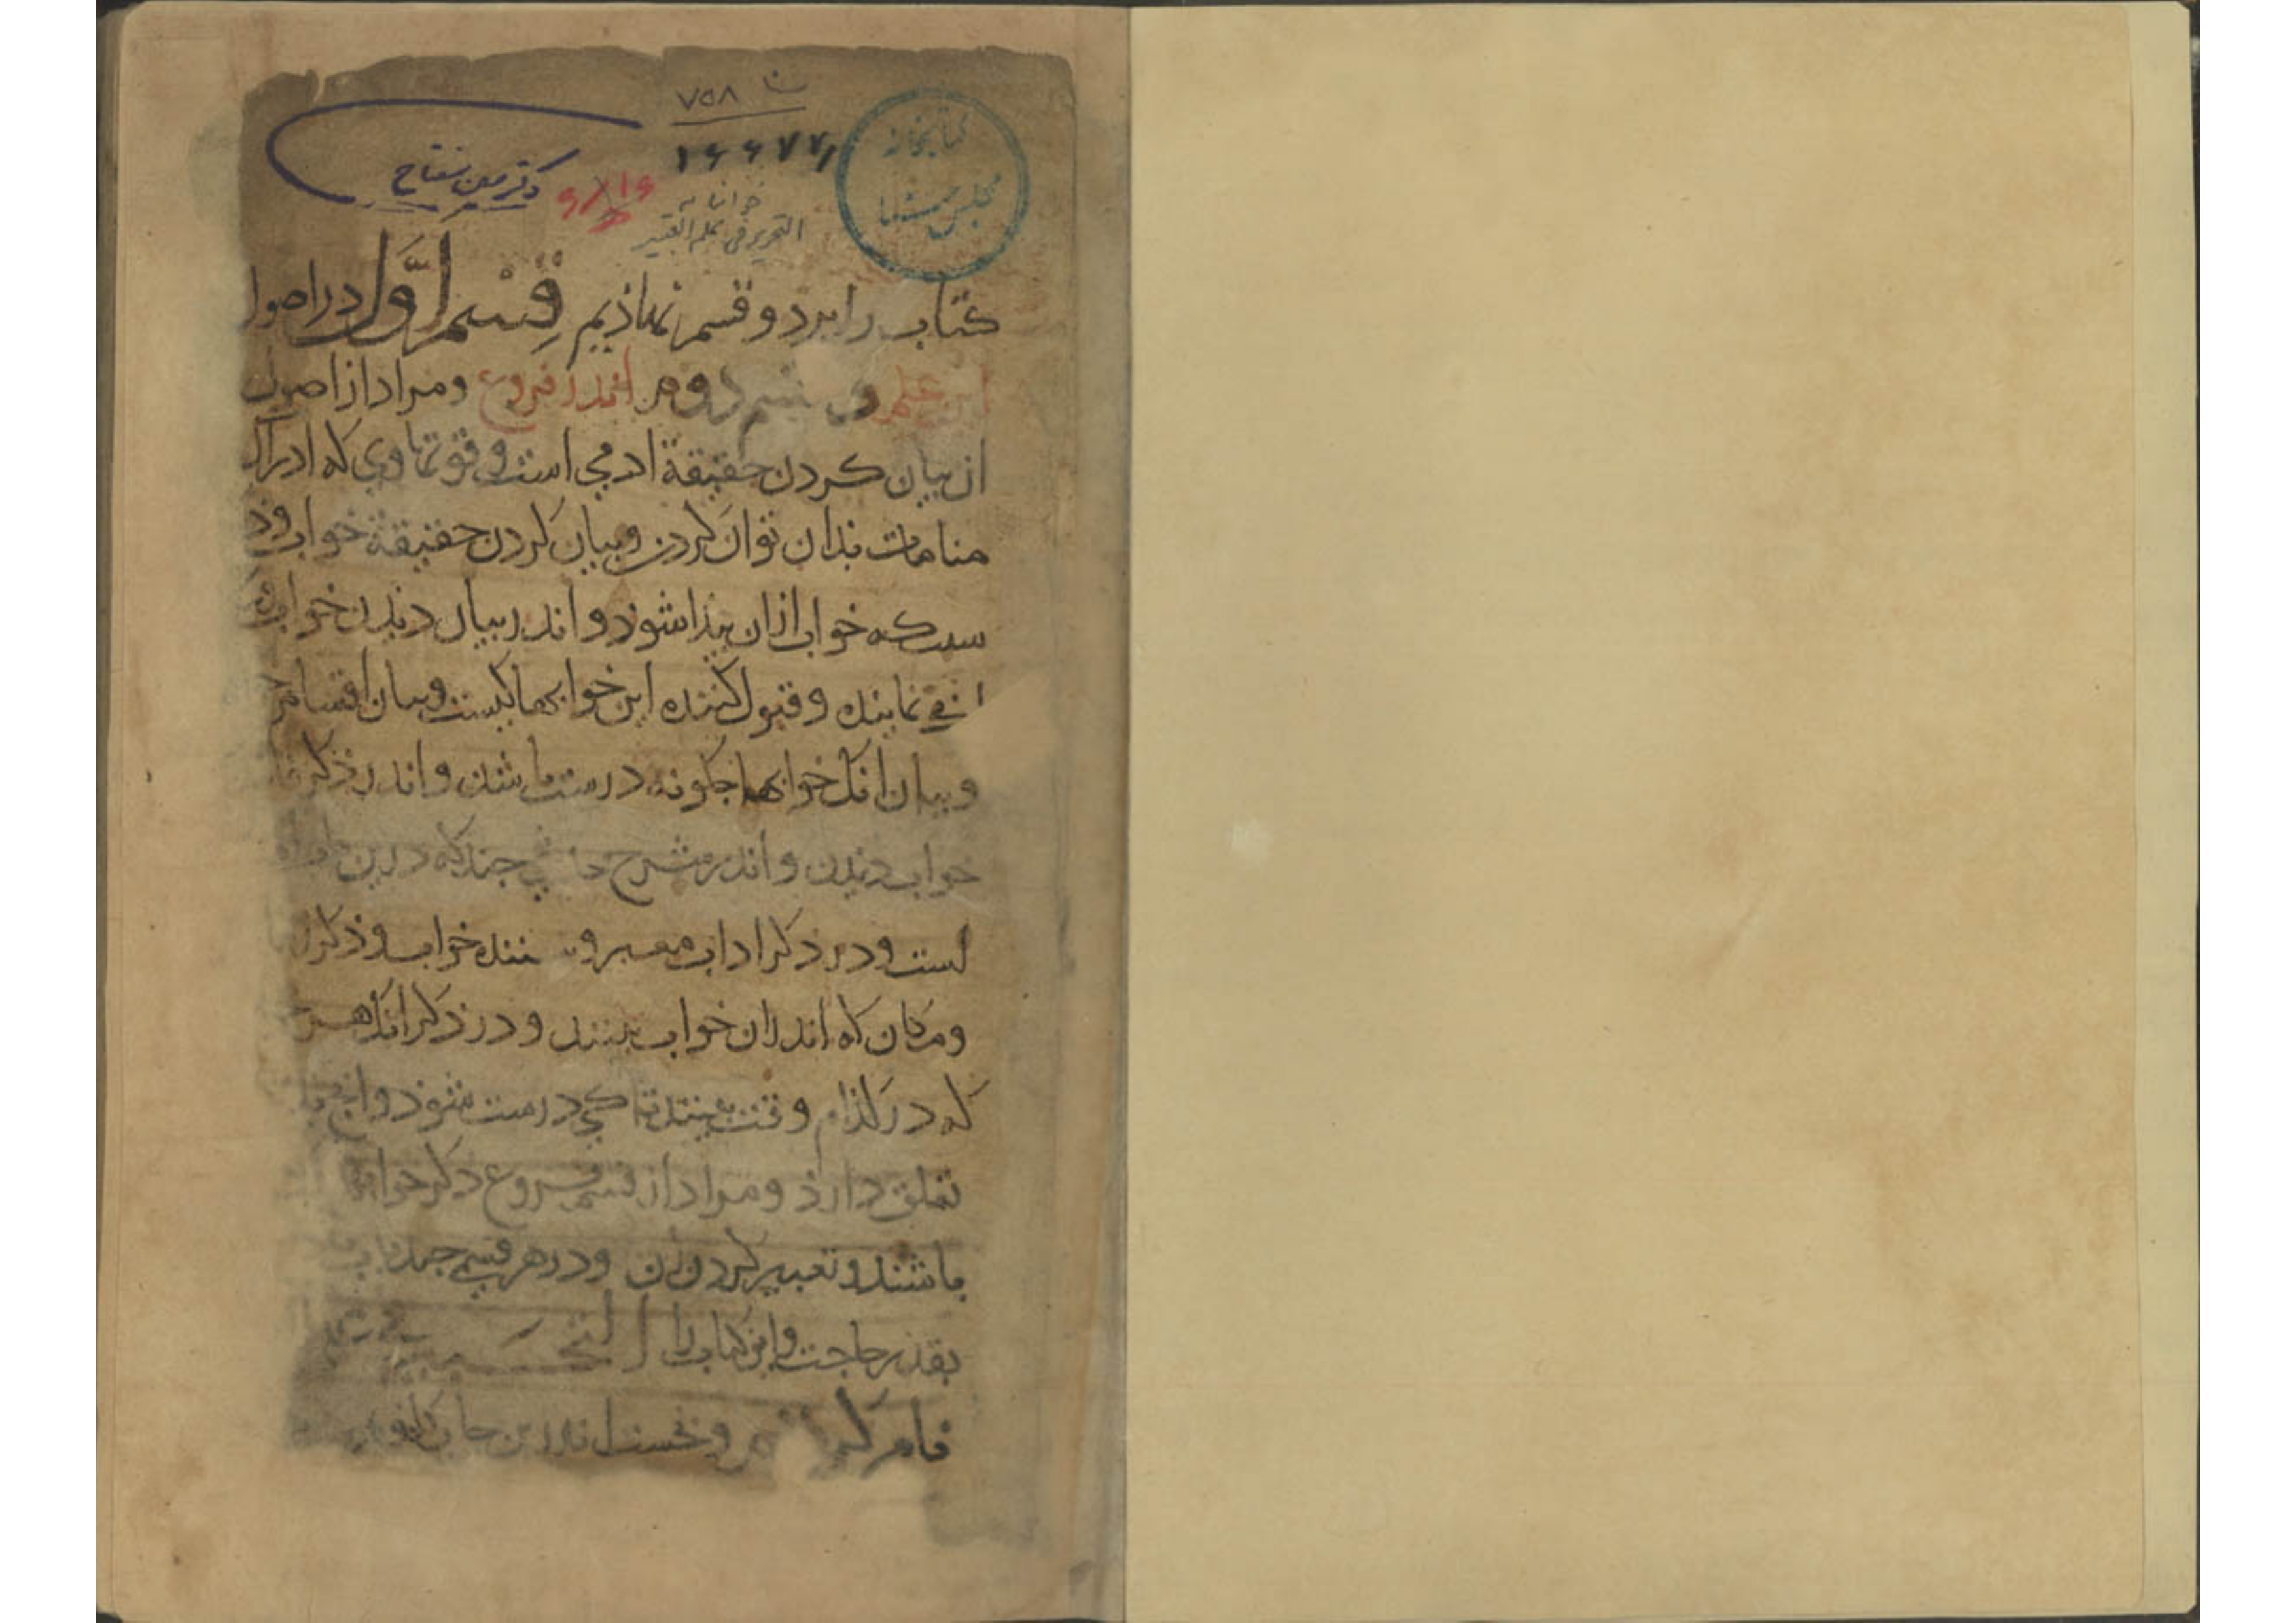 ۷۵۸
۱۶۶۷۷
کتابخانه
مجلس
دکتر
التحبیر فی علم التعبیر
کتاب را بر دو قسم نهاذیم قِسْم اوَّل در اصول
این علم دوم اندر فروع و مراد از اصول
از بیان کردن حقیقة ادمی است و قوتهاوی که ادراک
منامات بذان توان کردن و بیان کردن حقیقة خواب و
سبب که خواب ازان پیذا شوذ و اندر بیان دیذن خواب
نماینده و قبول کننده این خوابها کیست و بیان اقسام
و بیان انک خوابها جکونه درست باشذ و اندر ذکر
خواب دیذن و اندر شرح جند که درین
است و در ذکر اداب معبر و خواب و ذکر
و مکان که اندران خواب بینند و در ذکر انک هر
که در کذام وقت بینند تا کی درست شوذ و انج
تعلق دارذ و مراد از قسم فروع ذکر خوابها
باشند و تعبیر کردن ان و در هر قسمی جند باب
بقدر حاجت و این کتاب را التحبیر
نام و نخست اندرین